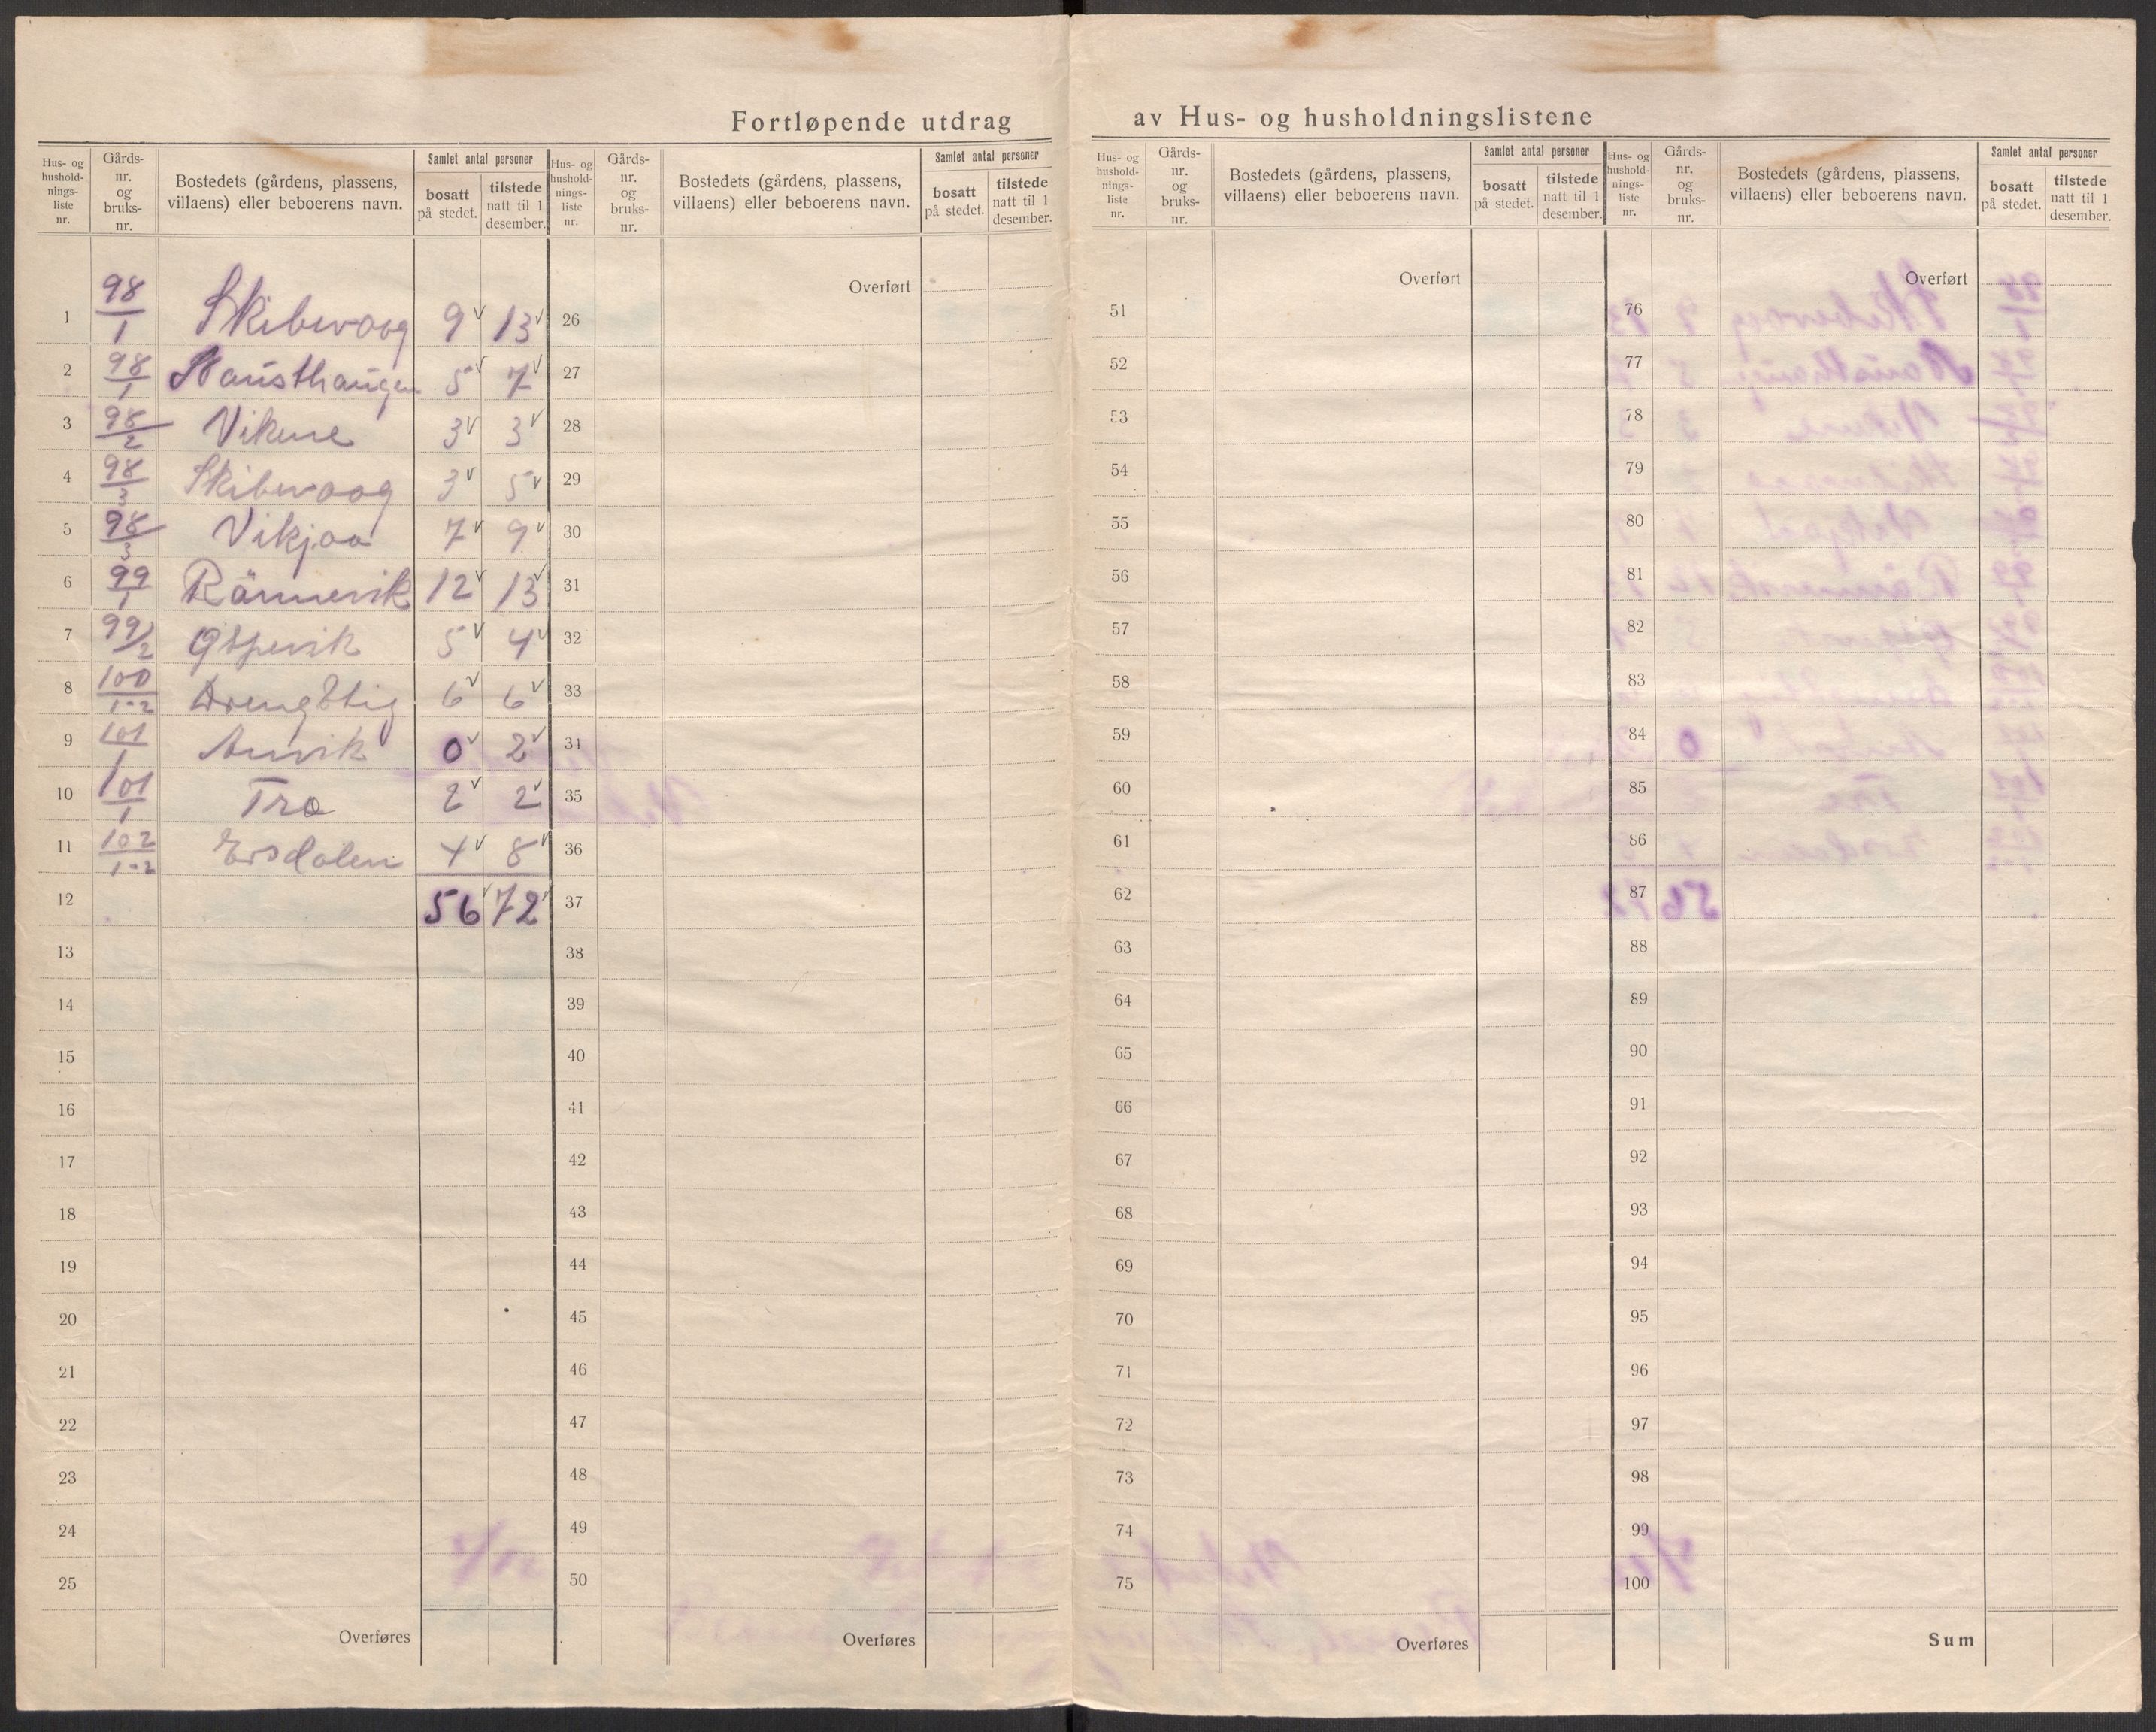 Fortløpende utdrag av Hus- og husholdningslistene
Hus- og hushold-nings-liste nr. | Gårds-nr. og bruks-nr. | Bostedets (gårdens, plassens, villaens) eller beboerens navn. | Samlet antal personer | bosatt på stedet. | tilstede natt til 1 desember.
1 98/1 Skibevaag 9 13
2 98/1 Nausthaugen 5 7
3 98/2 Vikene 3 3
4 98/3 Skibevaag 3 5
5 98/3 Vikjaa 7 9
6 99/1 Rännevik 12 13
7 99/2 Ospevik 5 4
8 100/1-2 Drengstig 6 6
9 101/1 Anvik 0 2
10 101/1 Tra 2 2
11 102/1-2 Ersdalen 4 8
12 56 72
13
14
15
16
17
18
19
20
21
22
23
24
25
Overføres
Hus- og hushold-nings-liste nr. | Gårds-nr. og bruks-nr. | Bostedets (gårdens, plassens, villaens) eller beboerens navn. | Samlet antal personer | bosatt på stedet. | tilstede natt til 1 desember.
Overført
26
27
28
29
30
31
32
33
34
35
36
37
38
39
40
41
42
43
44
45
46
47
48
49
50
Overføres
Hus- og hushold-nings-liste nr. | Gårds-nr. og bruks-nr. | Bostedets (gårdens, plassens, villaens) eller beboerens navn. | Samlet antal personer | bosatt på stedet. | tilstede natt til 1 desember.
Overført
51
52
53
54
55
56
57
58
59
60
61
62
63
64
65
66
67
68
69
70
71
72
73
74
75
Overføres
Hus- og hushold-nings-liste nr. | Gårds-nr. og bruks-nr. | Bostedets (gårdens, plassens, villaens) eller beboerens navn. | Samlet antal personer | bosatt på stedet. | tilstede natt til 1 desember.
Overført
76
77
78
79
80
81
82
83
84
85
86
87
88
89
90
91
92
93
94
95
96
97
98
99
100
Sum